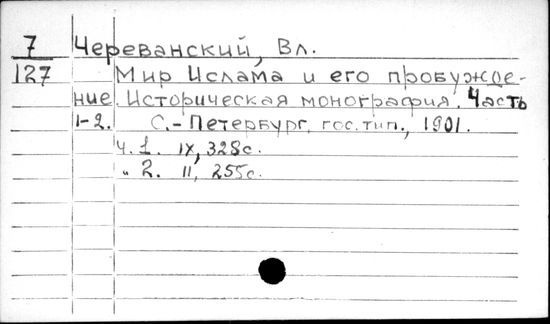 7 Череванский, Вл.
127 Мир Ислама и его пробужде-
ние. Историческая монография. Часть
1-2. С.-Петербург, гос.тип., 1901.
ч. 1. IX, 328с.
" 2. II, 255с.